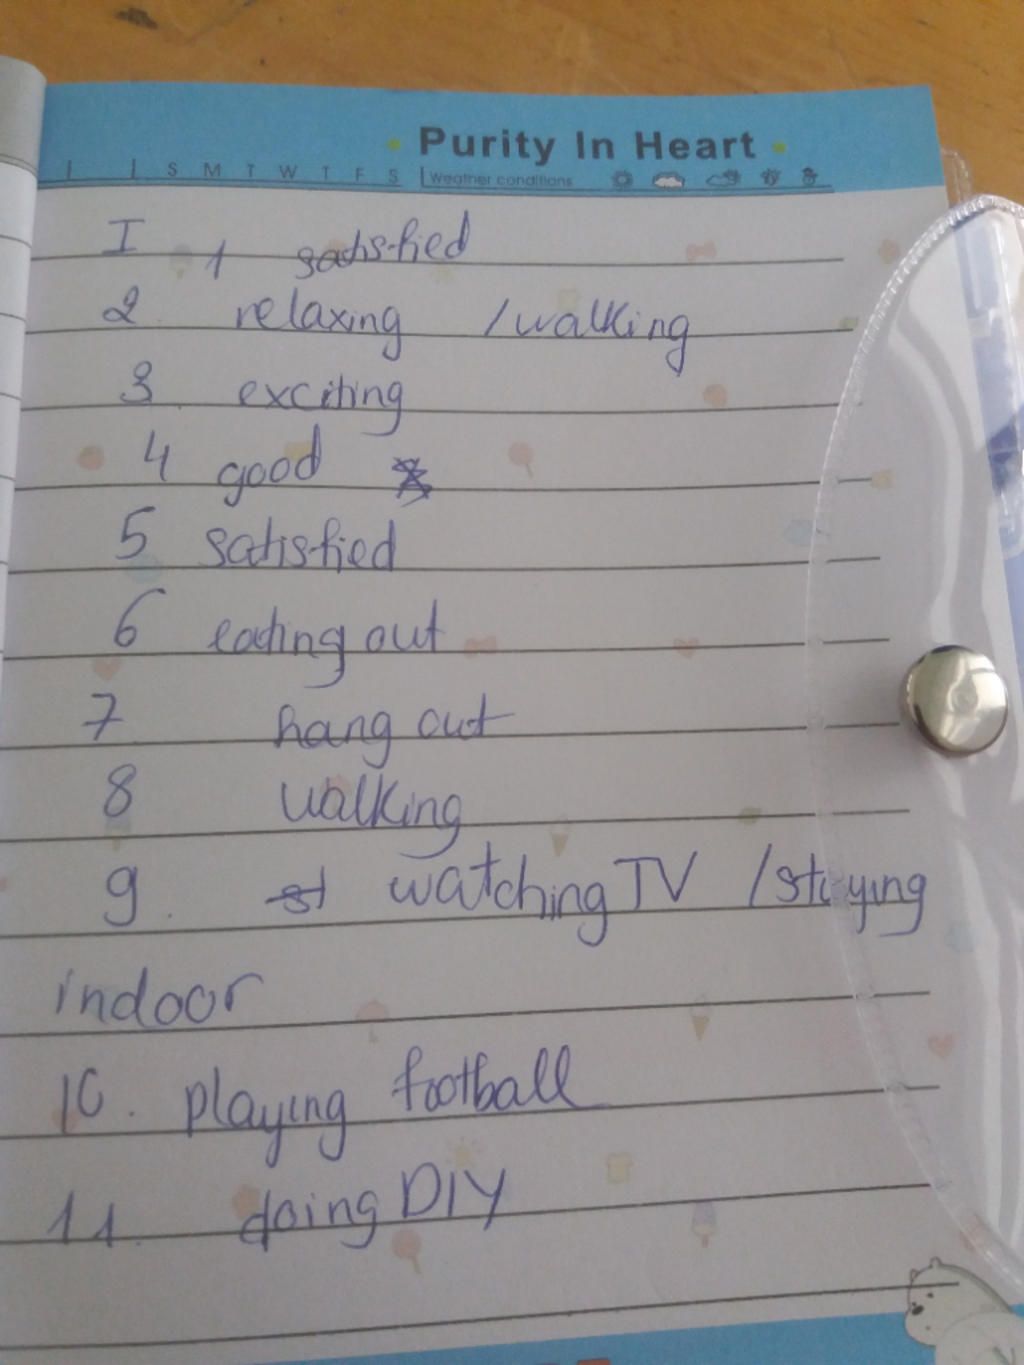 Purity In Heart
S M T W T F S Weather conditions
I 1 satisfied
2 relaxing /walking
3 exciting
4 good
5 satisfied
6 eating out
7 hang out
8 walking
9. st watching TV /staying
indoor
10. playing football
11. doing DIY